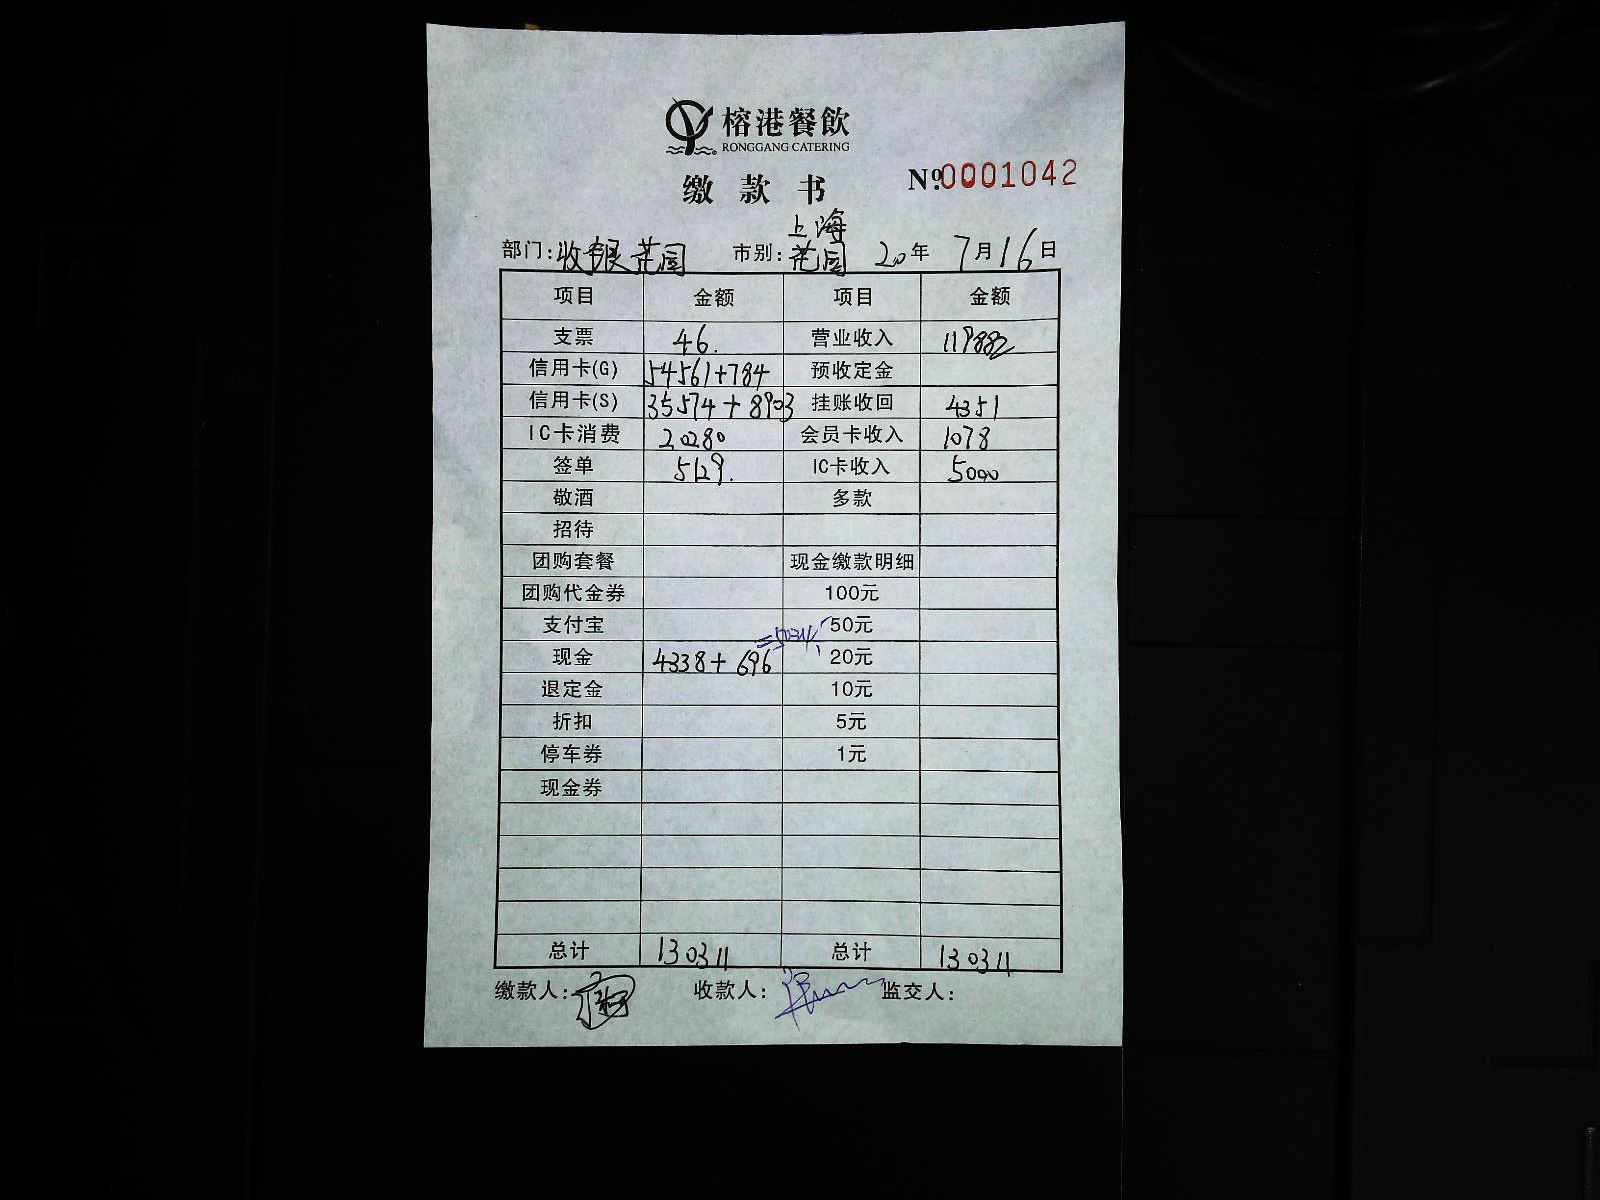 榕港餐飲
RONGGANG CATERING
缴款书 Nº.0001042
上海
部门:收银花园 市别:花园 20年7月16日
项目 金额 项目 金额
支票 46. 营业收入 119882
信用卡(G) 54561+784 预收定金
信用卡(S) 35574+8903 挂账收回 4351
IC卡消费 20280 会员卡收入 1078
签单 5129. IC卡收入 5000
敬酒 多款
招待
团购套餐 现金缴款明细
团购代金券 100元
支付宝 50元
现金 4338+696 20元
退定金 10元
折扣 5元
停车券 1元
现金券
总计 130311 总计 130311
缴款人: 收款人: 监交人: